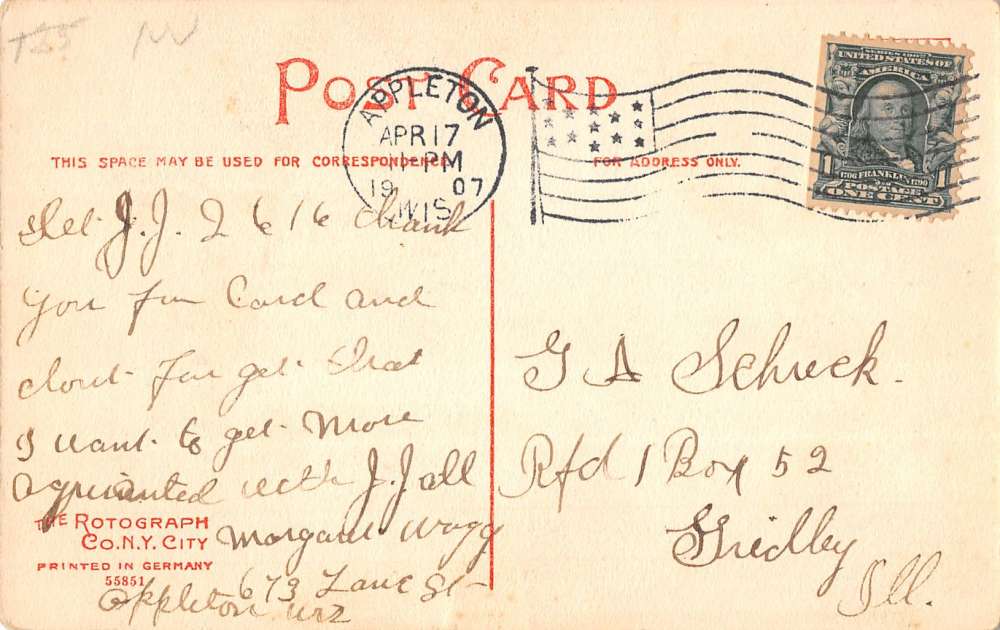 T25 W
POST CARD
THIS SPACE MAY BE USED FOR CORRESPONDENCE
FOR ADDRESS ONLY.
APPLETON
APR 17
PM
1907
WIS
SERIES 1902
UNITED STATES OF
AMERICA
1 1706 FRANKLIN 1790 1
POSTAGE
ONE CENT
J. J. 2 6 16 thank
you for Card and
dont forget that
I want to get More
aqquianted with J. J all
Margaret
673 Lane St
Appleton Wis
G A Schreck.
Rfd 1 Box 52
Gridley
Ill.
THE ROTOGRAPH
CO. N.Y. CITY
PRINTED IN GERMANY
55851